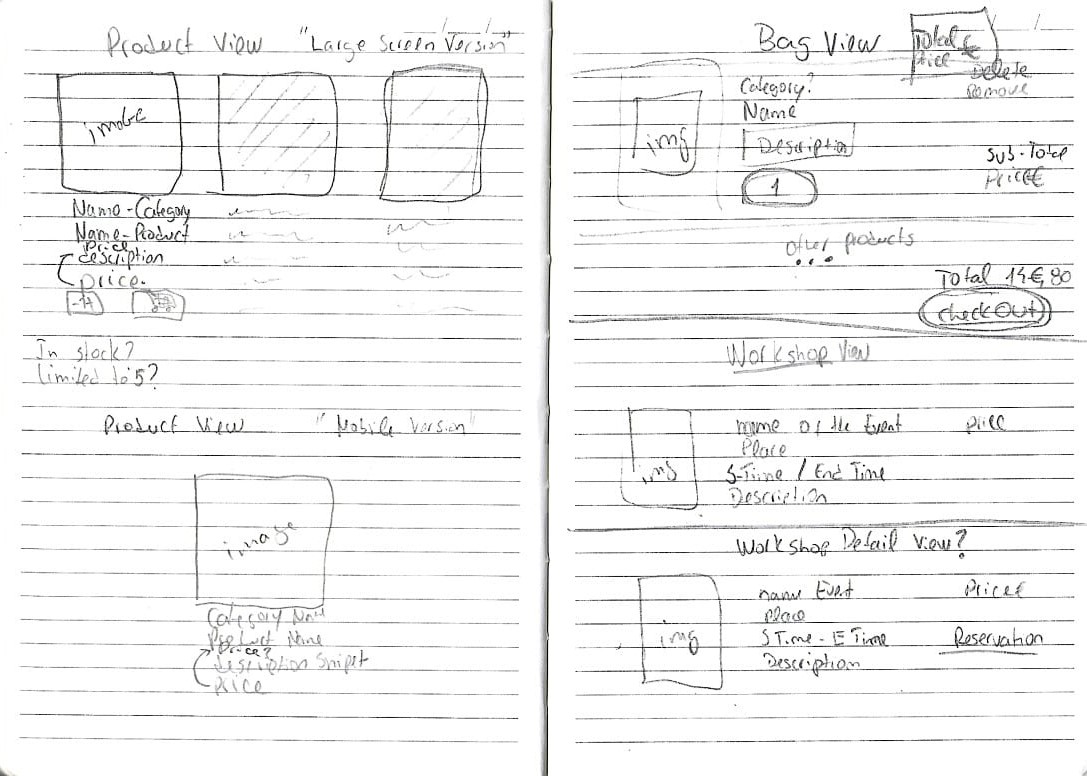 Product View "Large Screen Version"
image
Name-Category
Name-Product
Price
description
price.
In stock?
Limited to 5?
Product View "Mobile Version"
image
Category Name
Product Name
Price?
Description Snipet
Price
Bag View
Total €
Price
Delete
Remove
img
Category?
Name
Description
1
Sub-Total
Price€
Other products
...
Total 14€,80
CheckOut
Workshop View
img
name of the Event price
Place
S-Time / End Time
Description
Workshop Detail View?
img
name Event Price€
Place
S Time - E Time Reservation
Description